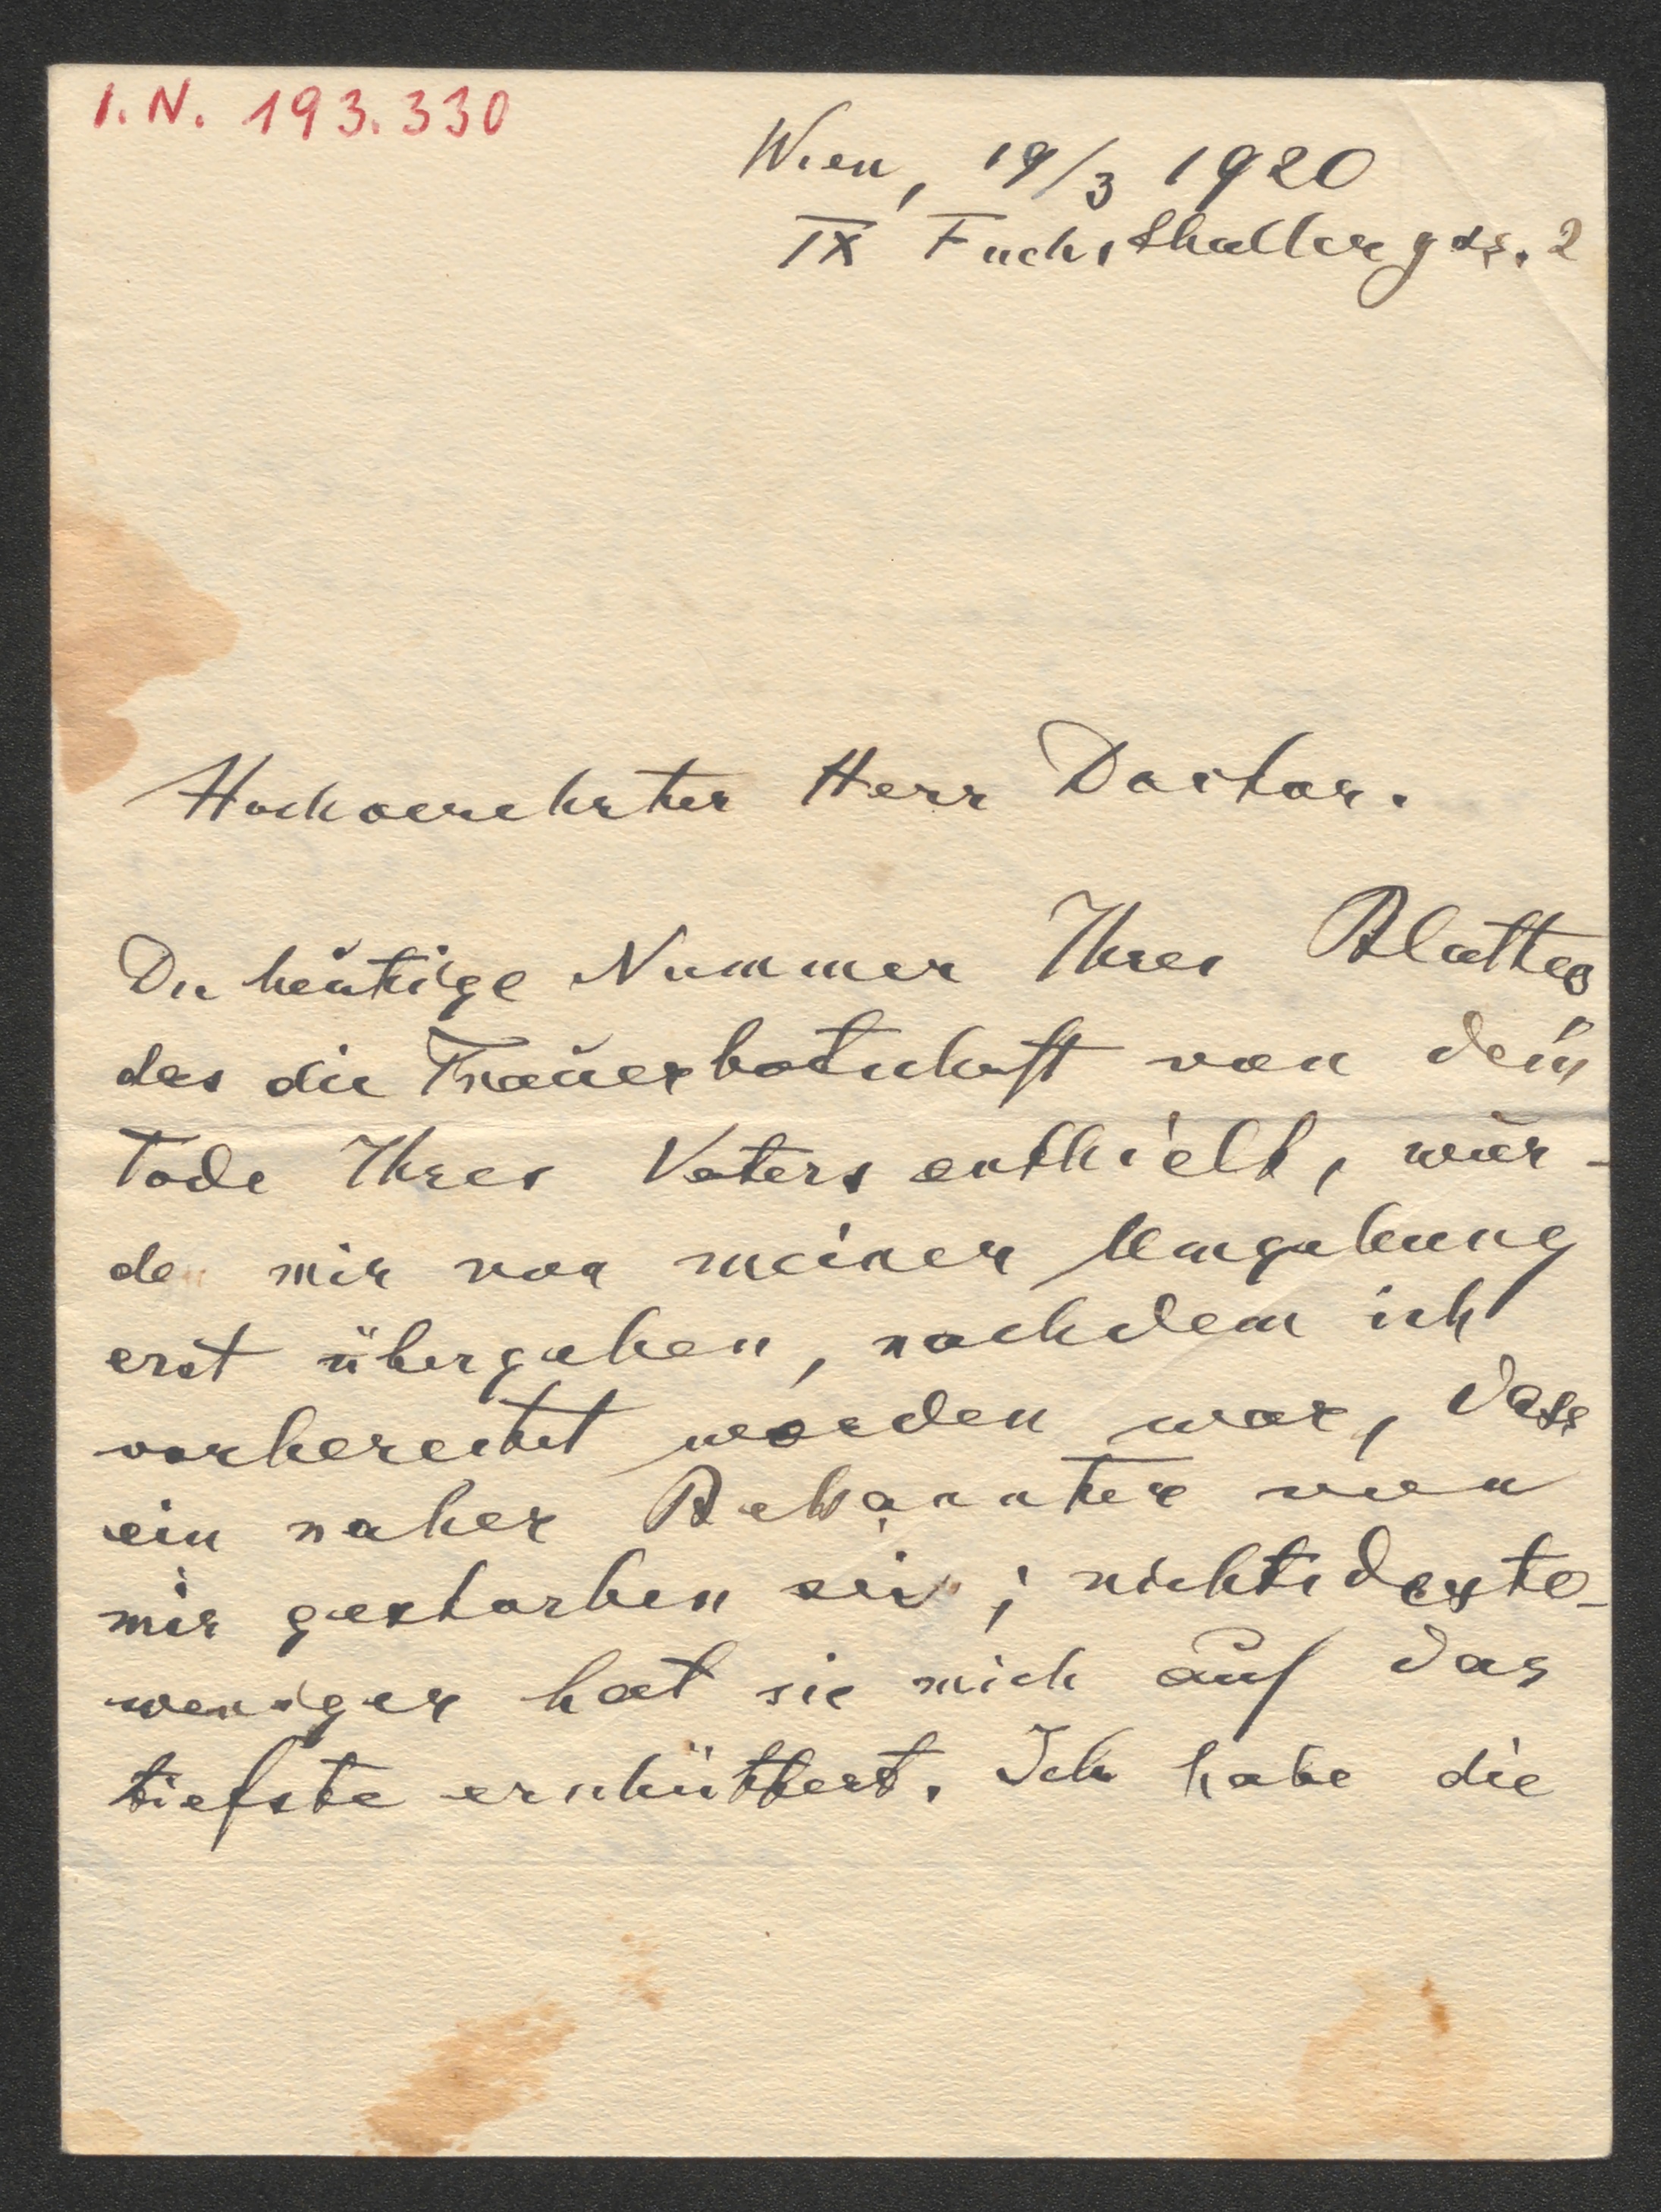 I.N. 193.330
Wien, 19/3 1920
IX Fuchsthallergss. 2
Hochverehrter Herr Doctor.
Die heutige Nummer Ihres Blattes
das die Trauerbotschaft von dem
Tode Ihres Vaters enthielt, wur-
de mir von meiner Umgebung
erst übergeben, nachdem ich
vorbereitet worden war, dass
ein naher Bekannter von
mir gestorben sei; nichtsdesto-
weniger hat sie mich auf das
tiefste erschüttert. Ich habe die